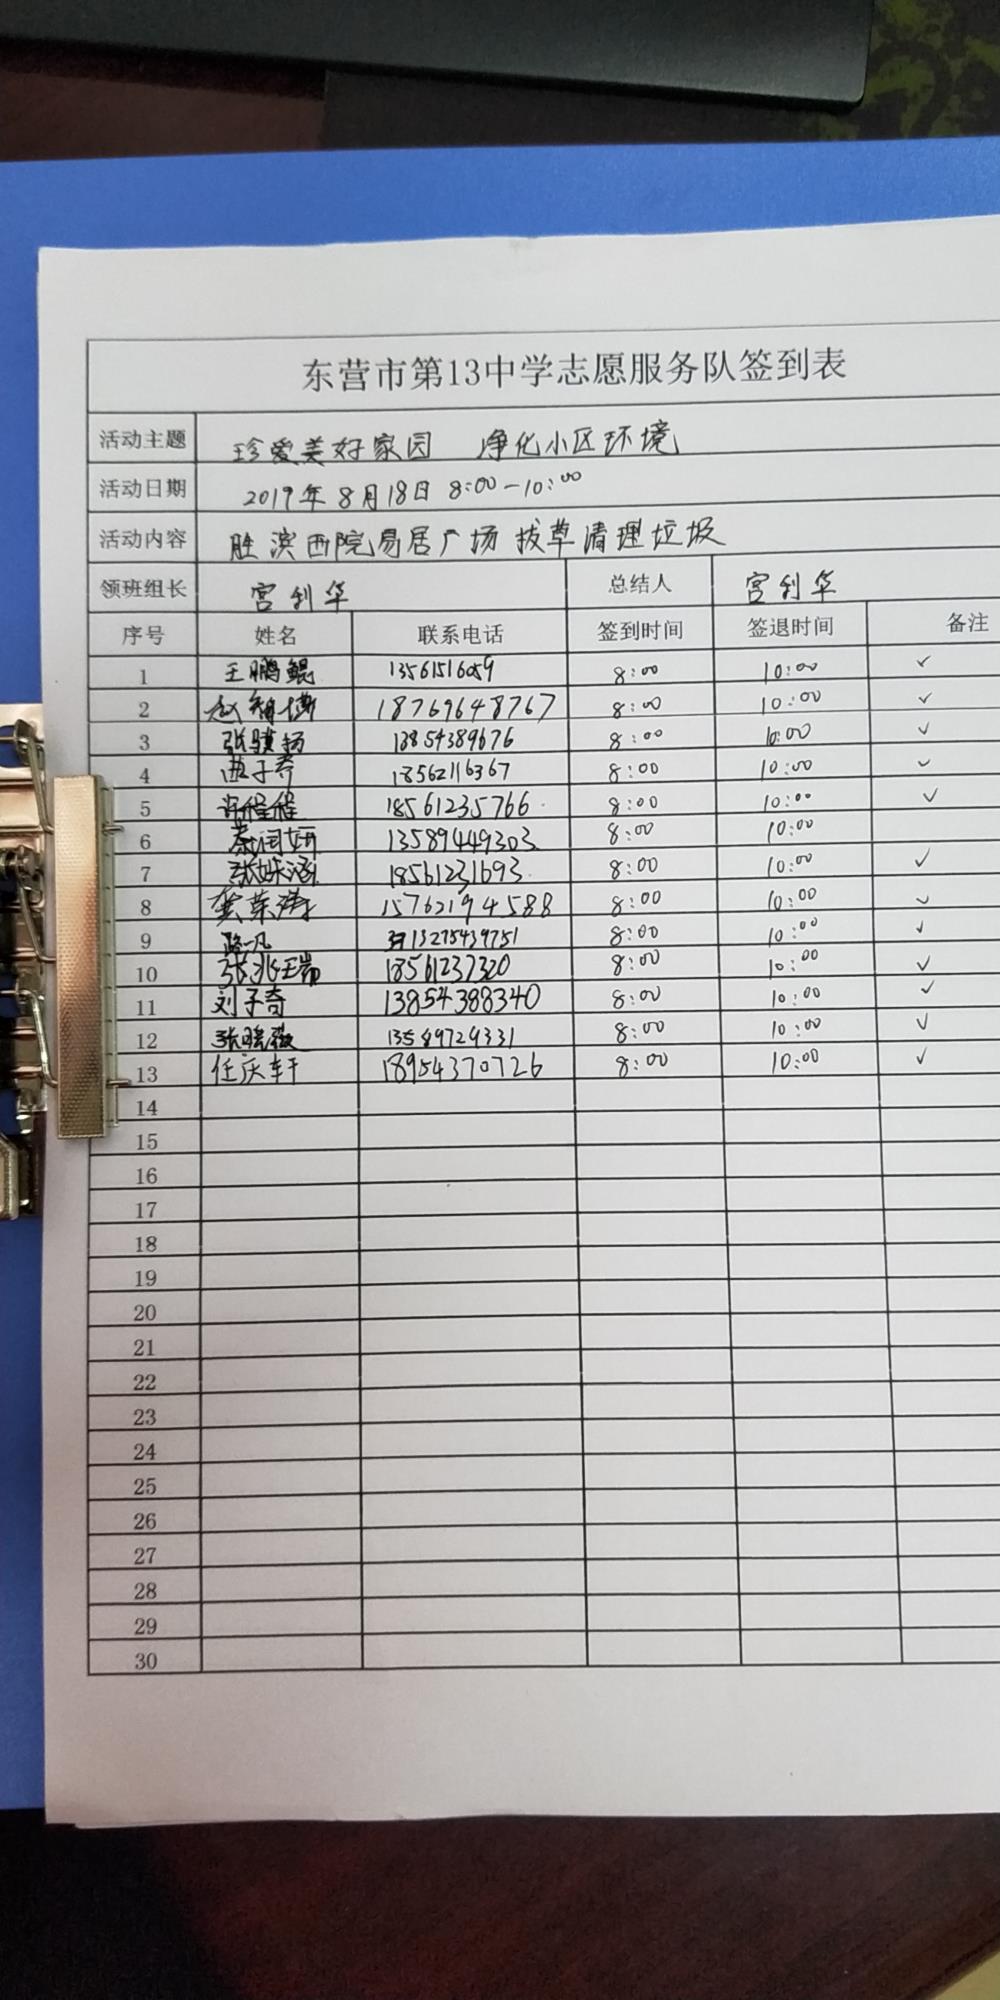 东营市第13中学志愿服务队签到表
活动主题 珍爱美好家园 净化小区环境
活动日期 2019年8月18日 8:00-10:00
活动内容 胜滨西院易居广场 拔草清理垃圾
领班组长 宫利华 总结人 宫利华
序号 姓名 联系电话 签到时间 签退时间 备注
1 王鹏鲲 13561516059 8:00 10:00 ✓
2 赵智博 18769648767 8:00 10:00 ✓
3 张骥扬 13854389676 8:00 10:00 ✓
4 曲子乔 18562116367 8:00 10:00 ✓
5 许程程 18561235766 8:00 10:00 ✓
6 13589449303 8:00 10:00
7 张姝涵 18561231693 8:00 10:00 ✓
8 龚荣涛 15762194588 8:00 10:00 ✓
9 路一凡 13275439751 8:00 10:00 ✓
10 张兆瑞 18561237320 8:00 10:00 ✓
11 刘子奇 13854388340 8:00 10:00 ✓
12 13589729331 8:00 10:00 ✓
13 任庆轩 18954370726 8:00 10:00 ✓
14
15
16
17
18
19
20
21
22
23
24
25
26
27
28
29
30